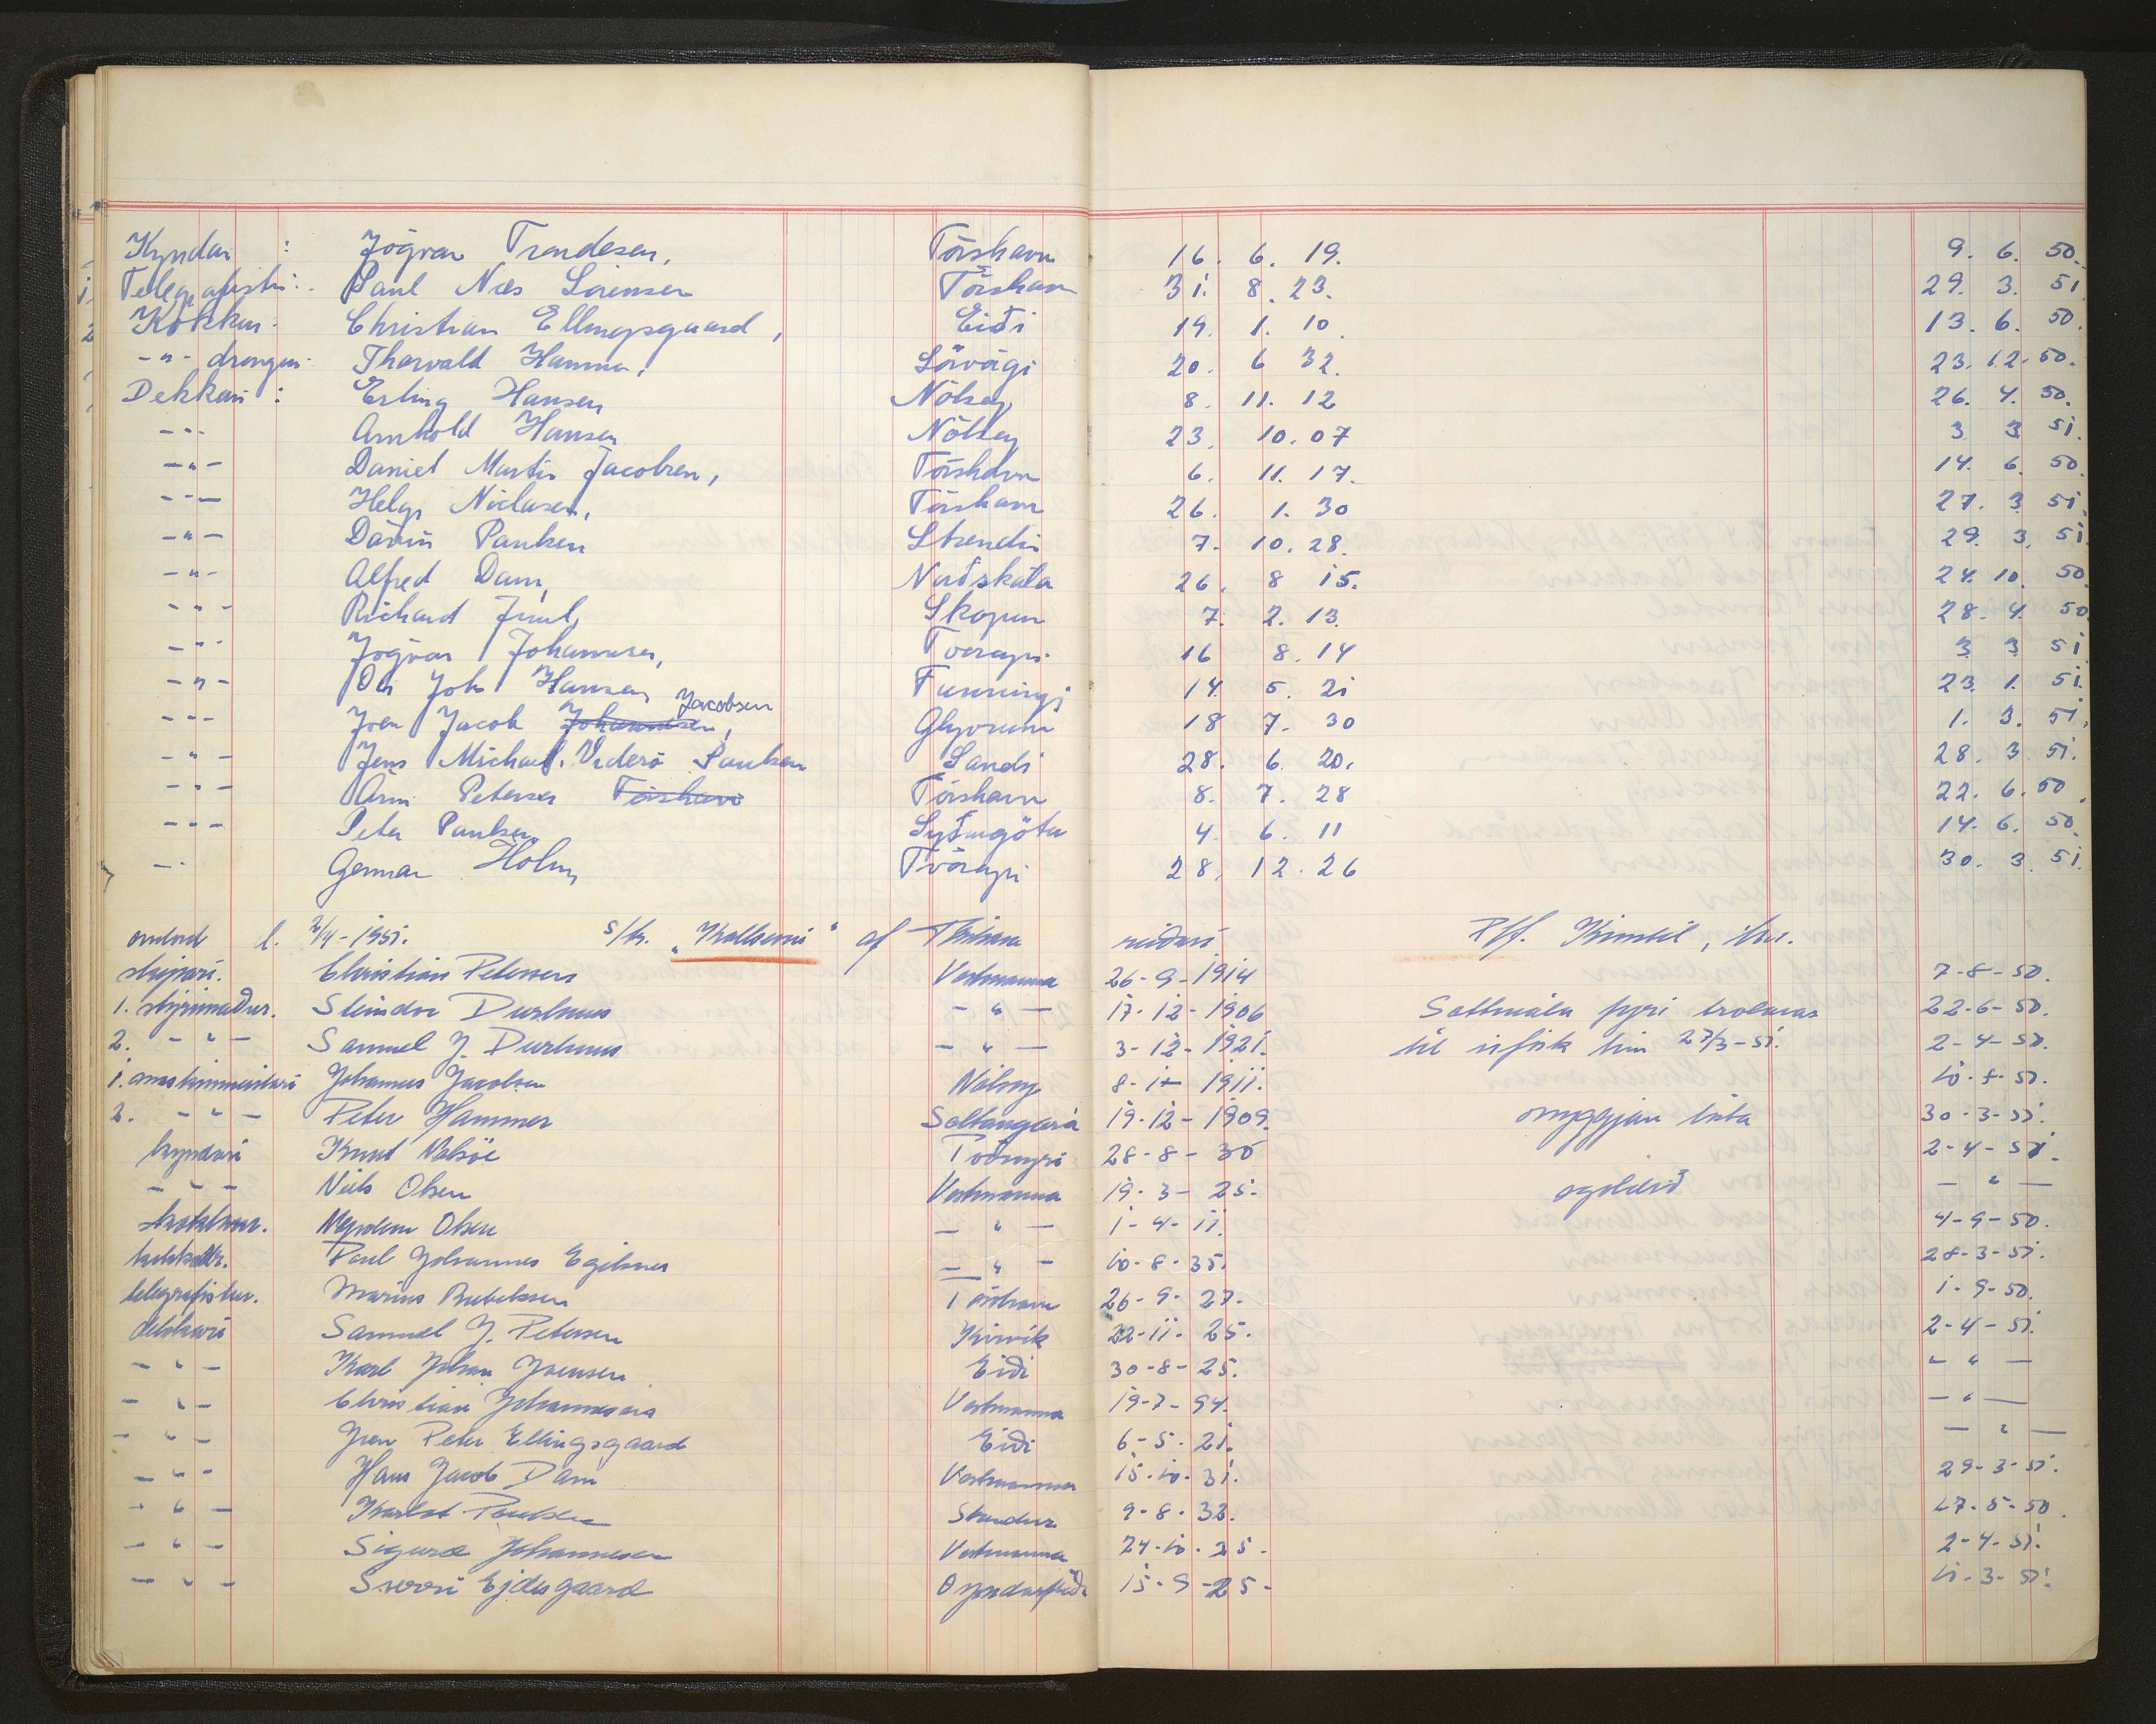 Kyndari : Jógvan Trondesen, Tórshavn 16. 6. 19. 9. 6. 50.
Telegrafisti: Paul Næs Sørensen Tórshavn 31. 8. 23. 29. 3. 51
Kokkur: Christian Ellingsgaard, Eiði 19. 1. 10 13. 6. 50.
-"- drongur: Thorvald Hammer, Sörvági 20. 6 32. 23. 12. 50.
Dekkari : Erling Hansen Nólsoy 8. 11. 12 26. 4. 50.
-"- Arnhold Hansen Nólsoy 23. 10. 07 3 3 51.
-"- Daniel Martin Jacobsen, Tórshavn 6. 11. 17. 14. 6. 50
-"- Helgi Niclasen, Tórshavn 26. 1. 30 27. 3 51.
-"- Dávin Paulsen Strendir 7. 10. 28. 29. 3. 51.
-"- Alfred Dam, Norðskála 26. 8 15. 24. 10. 50
-"- Richard Juul, Skopun 7. 2. 13. 28. 4. 50
-"- Jógvan Johannesen, Tvøroyri 16 8. 14 3 3 51
-"- Oli Johs Hansen Funningi 14. 5. 21 23. 1. 51.
-"- Jven Jacob Johannesen, Jacobsen Glyvrum 18 7. 30 1. 3. 51.
-"- Jens Michael Viderö Paulsen Sandi 28. 6. 20. 28. 3 51.
-"- Árni Petersen Tórshavn Tórshavn 8. 7. 28 22. 6. 50.
-"- Peter Paulsen Syðrugötu 4. 6. 11 14. 6. 50.
-"- Gunnar Holm, Tvöroyri 28. 12. 26 30. 3. 51.
d. 2/4-1951. s/tr. „ " af reiðari
skipari. Christian Petersen Vestmanna 26-9-1914 7-8-50.
1. stýrimaður. Steindor Durhuus -"- 17-12-1906 Sáttmála fyri trolarar 22-6-50.
2. -"- Samuel J. Durhuus -"- 3-12-1921. til ísfisk hin 27/3-51. 2-4-50.
1. maskinmeistari Johannes Jacobsen Nólsoy
2. -"- Peter Hammer Saltangará 19-12-1909. 30-3-51.
kyndari Knut Nolsöe Tvöroyri 28-8-30 2-4-51.
-"- Niels Olsen Vestmanna 19-3-25. ogoldið -"-
kokkur. Olsen -"- 1-4-11. 4-9-50.
Poul Johannes Egilsnes -"- 10-8-35. 28-3-51.
telegrafistur. Marius Rubeksen Tórshavn 26-9-27. 1-9-50.
dekkari Samuel J. Petersen Kvívík 22-11-25. 2-4-51.
-"- Karl Johan Joensen Eiði 30-8-25. -"-
-"- Christian Johannesen Vestmanna 19-7-94. -"-
-"- Jven Peter Ellingsgaard Eiði 6-5-21. -"-
-"- Hans Jacob Dam Vestmanna 15-10-31. 29-3-51.
-"- Poulsen Strendur 9-8-32. 17-5-50.
-"- Sigurd Johannesen Vestmanna 24-10-25- 2-4-51.
-"- Sverri Ejdesgaard Oyndarfjøði 15-9-25-